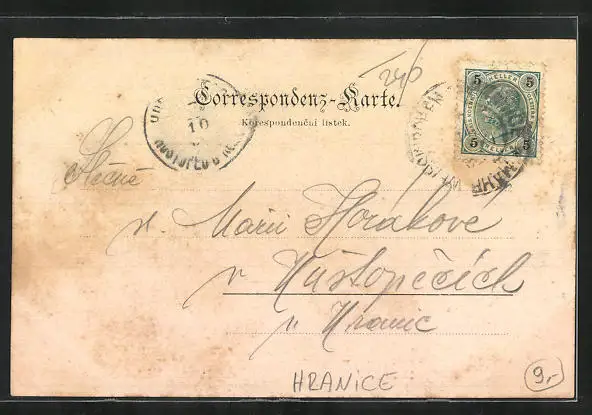 240
Correspondenz-Karte.
Korespondenční lístek.
5 HELLER 5
5 HELLER 5
10
Slečně
sl. Marii Horákove
v Hustopečích
u Hranic
HRANICE
9,-